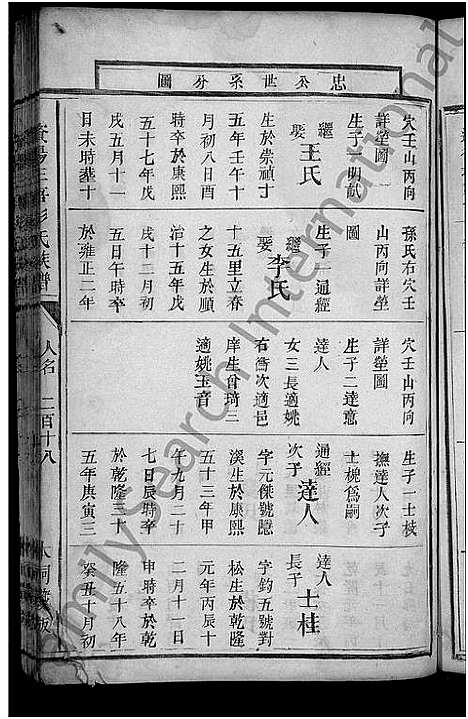 忠公世系分圖
穴壬山丙向
詳塋圖
生子一明猷
繼娶王氏
生於崇禎丁
五年壬午十
月初八日酉
時卒於康熙
五十七年戊
戌五月十一
日未時葬十
孫氏右穴壬
山丙向詳塋
圖
生子一通經
繼娶李氏
十五里立春
之女生於順
治十五年戊
戌十二月初
五日午時卒
於雍正二年
穴壬山丙向
詳塋圖
生子二達意
達人
女三長適姚
右衡次適邑
庠生曾琦三
適姚玉音
生子一士枝
撫達人次子
士梡為嗣
通經次子達人
字元傑號聽
溪生於康熙
五十三年甲
午九月二十
七日辰時卒
於乾隆三十
五年庚寅三
達人長子士桂
字鈞五號對
松生於乾隆
元年丙辰十
二月十一日
申時卒於乾
隆五十八年
癸丑十月初
氏族譜
人名
二百十八
FamilySearch International